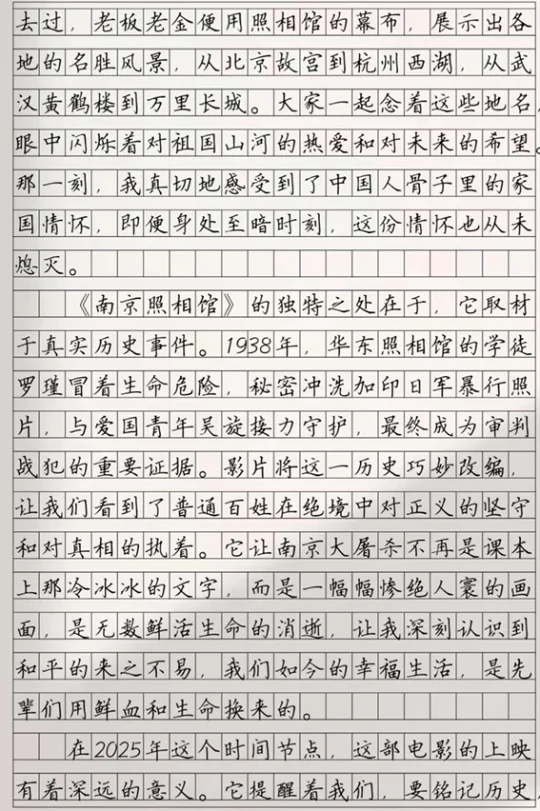 去过，老板老金便用照相馆的幕布，展示出各
地的名胜风景，从北京故宫到杭州西湖，从武
汉黄鹤楼到万里长城。大家一起念着这些地名，
眼中闪烁着对祖国山河的热爱和对未来的希望。
那一刻，我真切地感受到了中国人骨子里的家
国情怀，即便身处至暗时刻，这份情怀也从未
熄灭。
《南京照相馆》的独特之处在于，它取材
于真实历史事件。1938年，华东照相馆的学徒
罗瑾冒着生命危险，秘密冲洗加印日军暴行照
片，与爱国青年吴旋接力守护，最终成为审判
战犯的重要证据。影片将这一历史巧妙改编，
让我们看到了普通百姓在绝境中对正义的坚守
和对真相的执着。它让南京大屠杀不再是课本
上那冷冰冰的文字，而是一幅幅惨绝人寰的画
面，是无数鲜活生命的消逝，让我深刻认识到
和平的来之不易，我们如今的幸福生活，是先
辈们用鲜血和生命换来的。
在2025年这个时间节点，这部电影的上映
有着深远的意义。它提醒着我们，要铭记历史，